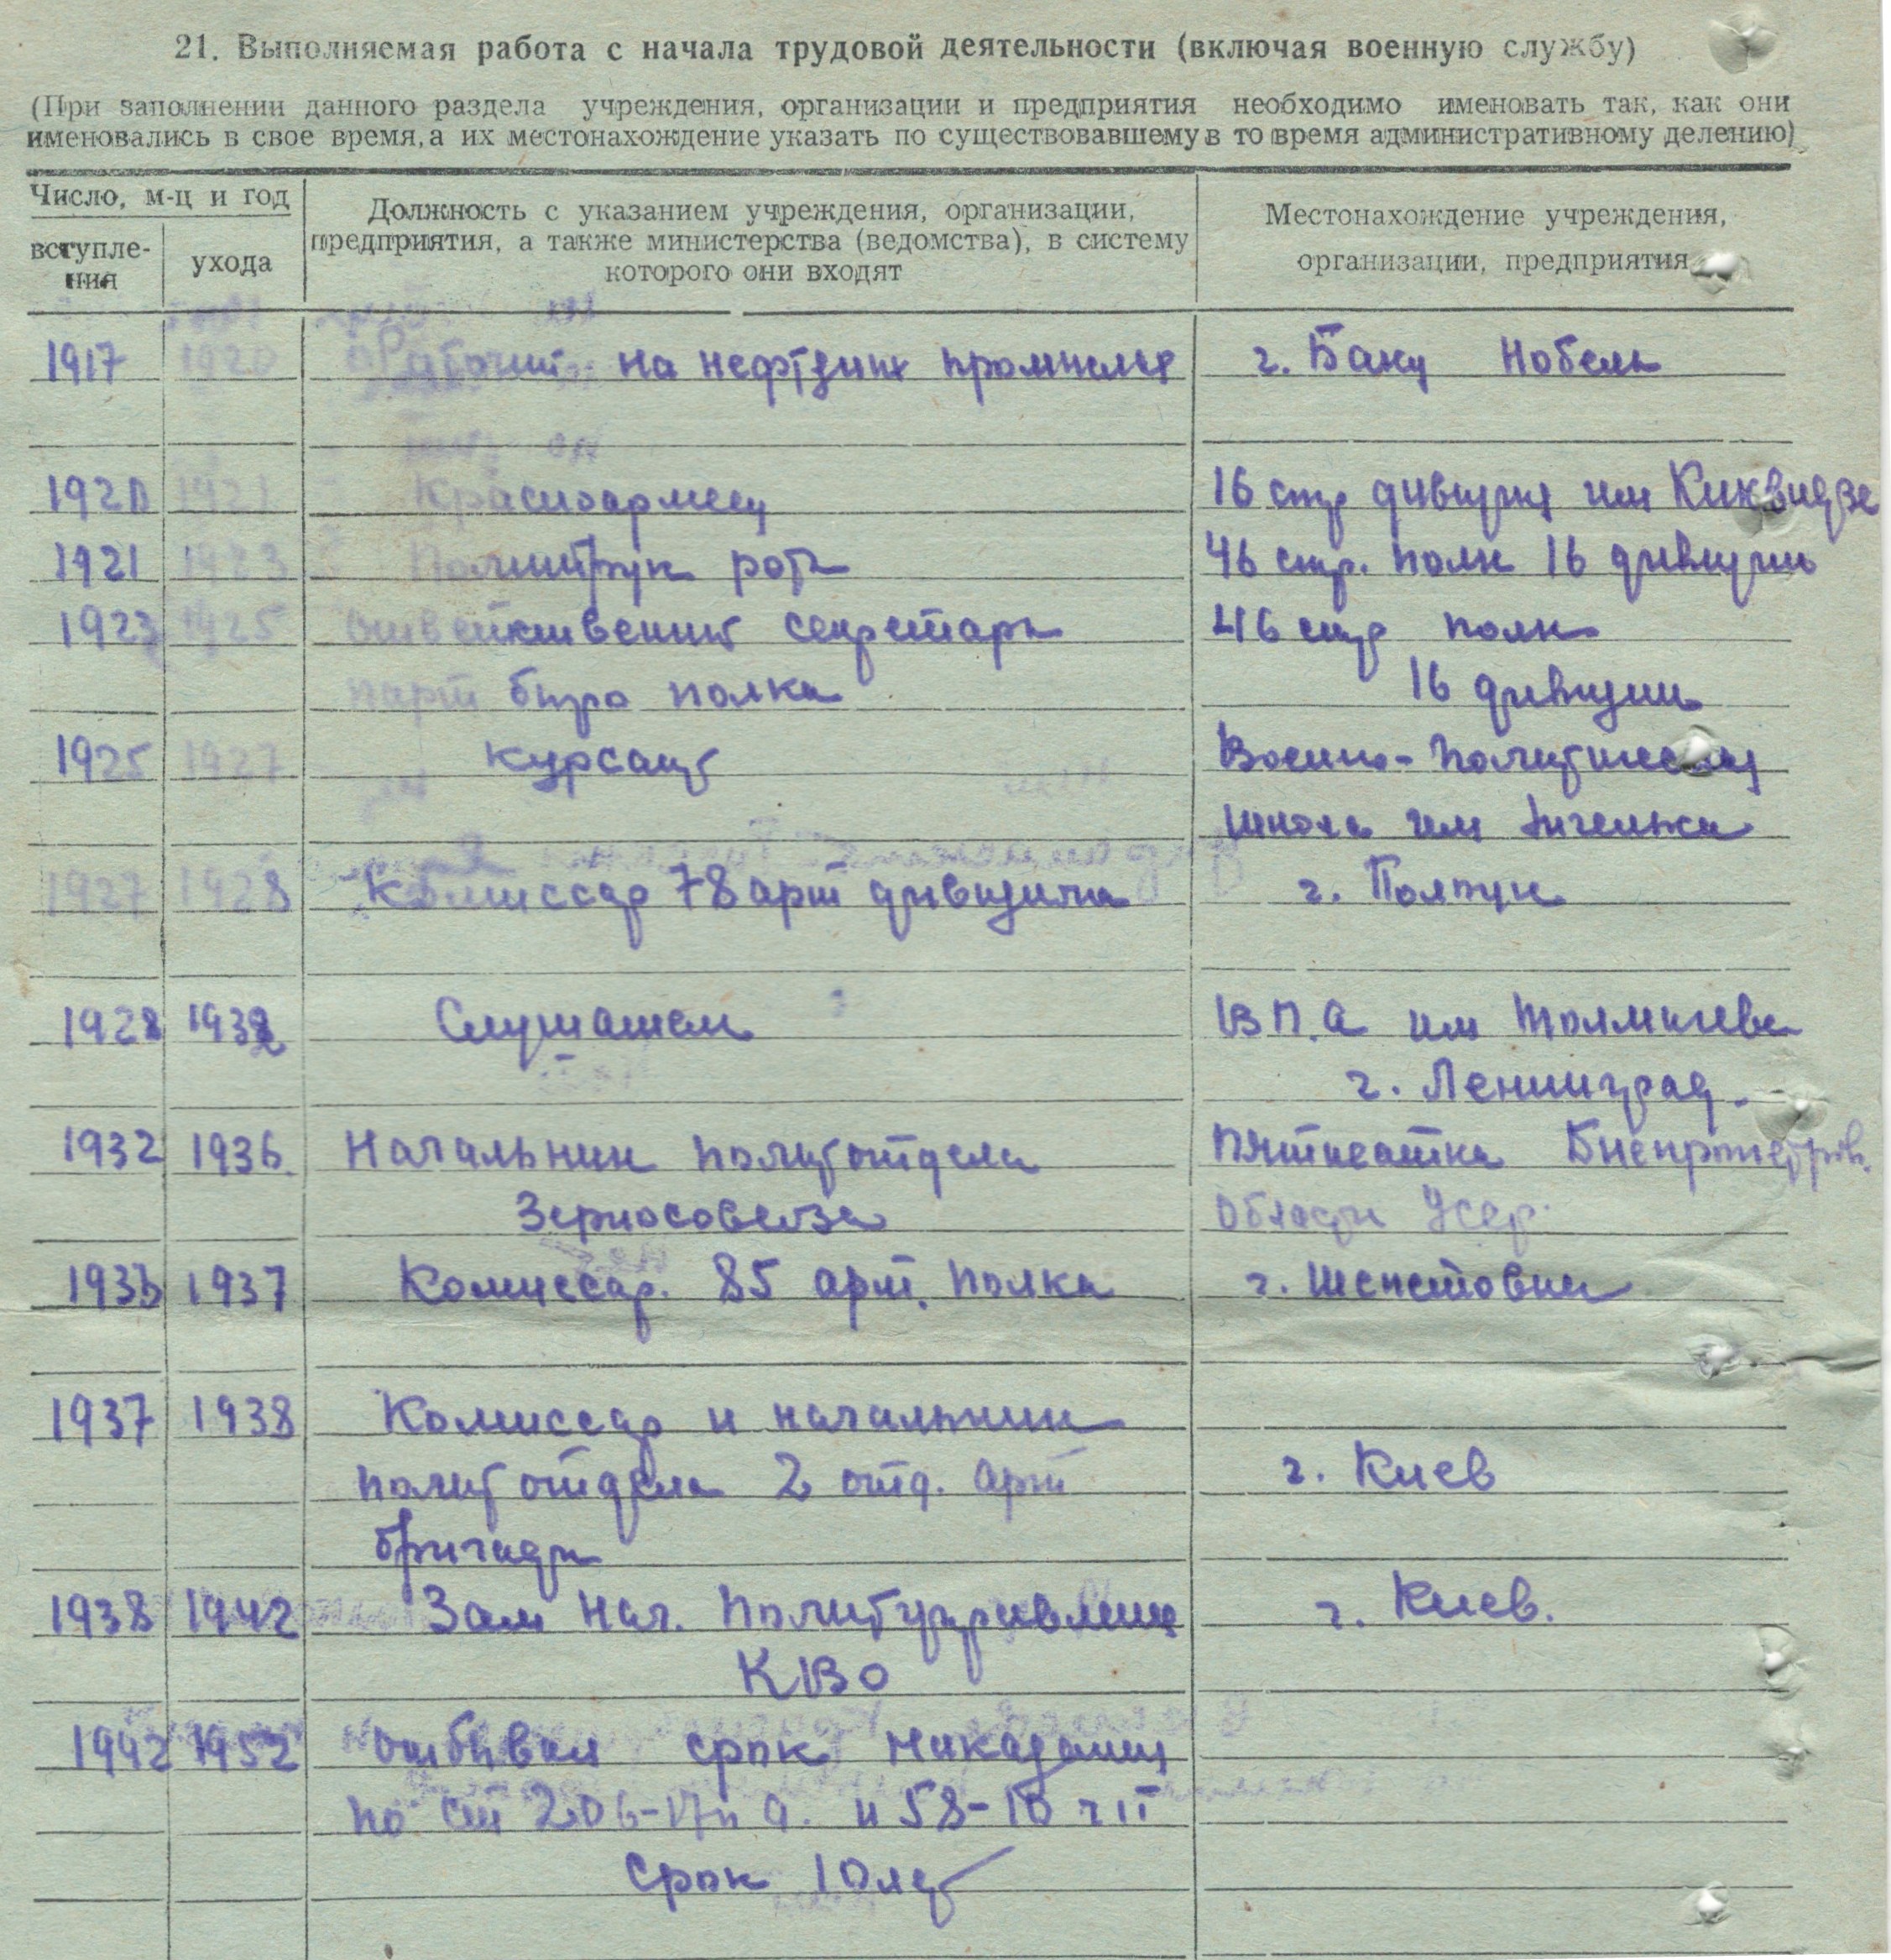 21. Выполняемая работа с начала трудовой деятельности (включая военную службу)
(При заполнении данного раздела учреждения, организации и предприятия необходимо именовать так, как они
именовались в свое время, а их местонахождение указать по существовавшему в то время административному делению)
Число, м-ц и год
вступле-
ния
ухода
Должность с указанием учреждения, организации,
предприятия, а также министерства (ведомства), в систему
которого они входят
Местонахождение учреждения,
организации, предприятия
1917 1920 Рабочий на нефтяных промыслах г. Баку Нобель
1920 1921 Красноармеец 16 стр дивизия им Киквидзе
1921 1923 Политрук роты 46 стр. полк 16 дивизии
1923 1925 Ответственный секретарь 46 стр полк
парт бюро полка 16 дивизии
1925 1927 Курсант Военно-политическая
школа им Энгельса
1927 1928 Комиссар 78 арт дивизиона г.
1928 1932 Слушатель В П. А им Толмачева
г. Ленинград.
1932 1936 Начальник политотдела Пятихатка Днепропетров.
Зерносовхоза Области Усср.
1936 1937 Комиссар. 85 арт. полка г. Шепетовка
1937 1938 Комиссар и начальник
политотдела 2 отд. арт г. Киев
бригады
1938 1942 Зам Нач. Политуправления г. Киев.
КВО
1942 1952 Отбывал срок наказания
по ст 206-17 п а. и 58-10 ч II
Срок 10 лет